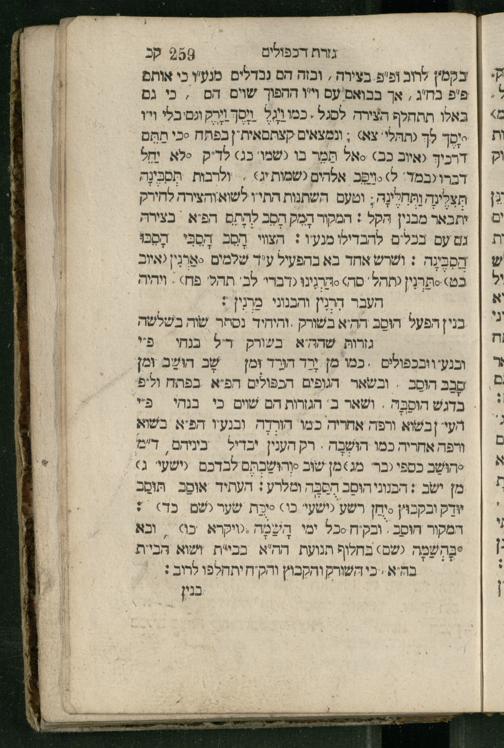 גזרת דכפולים 259 קב
בקמץ לרוב ופ״פ בצירה, ובזה הם נבדלים מנע״ו כי אותם
פ״פ בח״ג, אך בבואם עם וי״ו ההפוך שוים הם, כי גם
באלו תתחלף הצירה לסגל, כמו וַיָּגֶל וַיָּסֶךְ וַיָּרֶק וגם בלי וי״ו
יָסֶךְ לך (תהלי׳ צא): ונמצאים קצתם את״ן בפתח °כי תַתֵּם
דרכיך (איוב כב) °אל תַּמֵּר בו (שמו׳ כג) לד״ק °לא יַחֵל
דברו (במד׳ ל) °וַיַּסֵּב אלהים (שמות יג). ולרבות תְּסִבֶּינָה
תְּצִלֶּינָה וַתְּחִלֶּינָה; וטעם השתנות התי״ו לשוא והצירה לחירק
יתבאר מבנין הקל: המקור הָמֵק הָסֵב לְהָתֵם הפ״א בצירה
גם עם בכל״ם להבדילו מנע״ו: הצווי הָסֵב הָסֵבִּי הָסֵבּוּ
הֲסִבֶּינָה: ושרש אחד בא בהפעיל ע״ד שלמים °אַרְנִן (איוב
כט) °תַּרְנִין (תהל׳ סה) °הַרְנִינוּ (דברי׳ לב׳ תהל׳ פח). ויהיה
העבר הִרְנִין והבנוני מַרְנִין:
בנין הפעל הוּסַב הה״א בשורק. והיחיד נסתר שוה בשלשה
גזרות שהה״א בשורק ר״ל בנחי פ״י
ובנע״ו ובכפולים. כמו מן יָרַד הוּרַד ומן שָׁב הוּשַׁב ומן
סָבַב הוּסַב. ובשאר הגופים הכפולים הפ״א בפתח ול״פ
בדגש הוּסַבָּה. ושאר ב׳ הגזרות הם שוים כי בנחי פ״י
העי״ן בשוא ורפה אחריה כמו הוּרְדָה ובנע״ו הפ״א בשוא
ורפה אחריה כמו הוּשְׁבָה. רק הענין יבדיל ביניהם, ד״מ
°הוּשַׁב כספי (בר׳ מג) מן שוב °וְהוּשַׁבְתֶּם לבדכם (ישעי׳ ג)
מן ישב: הבנוני הוּסַב הֻסַבָּה ומלרע: העתיד אוּסַב תּוּסַב
יוּדַק ובקבוץ °יֻחַן רשע (ישעי׳ כו) °יֻכַּת שער (שם כד):
המקור הוּסַב. ובק״ח °כל ימי הָשַּׁמָּה (ויקרא כו), ובא
°בָּהְשַׁמָּה (שם) בחלוף תנועת הה״א בבי״ת ושוא הבי״ת
בה״א, כי השורק והקבוץ והק״ח יתחלפו לרוב:
בנין